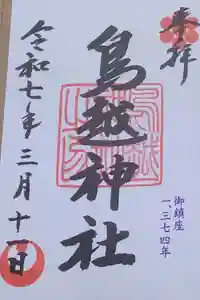 奉拝
鳥越神社
御鎮座
一、三七四年
令和七年三月十一日